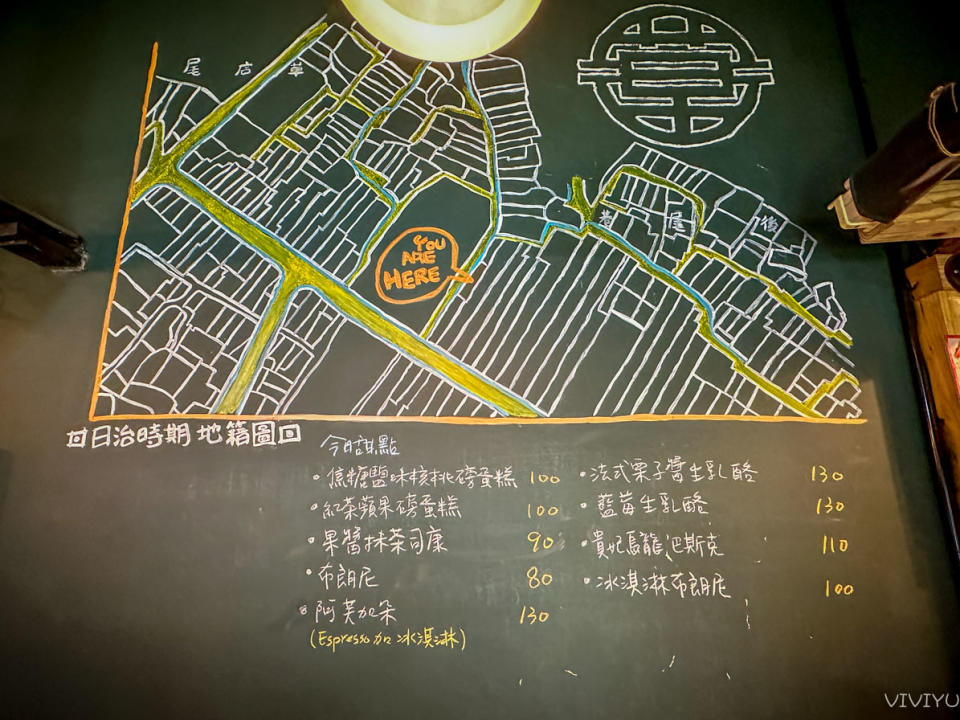 尾 店 草
YOU
ARE
HERE
巷 屋 後
日治時期 地籍圖
今日甜點
・焦糖鹽味核桃磅蛋糕 100
・紅茶蘋果磅蛋糕 100
・果醬抹茶司康 90
・布朗尼 80
・阿芙加朵 130
(Espresso加冰淇淋)
・法式栗子醬生乳酪 130
・藍莓生乳酪 130
・貴妃烏龍巴斯克 110
・冰淇淋布朗尼 100
VIVIYU